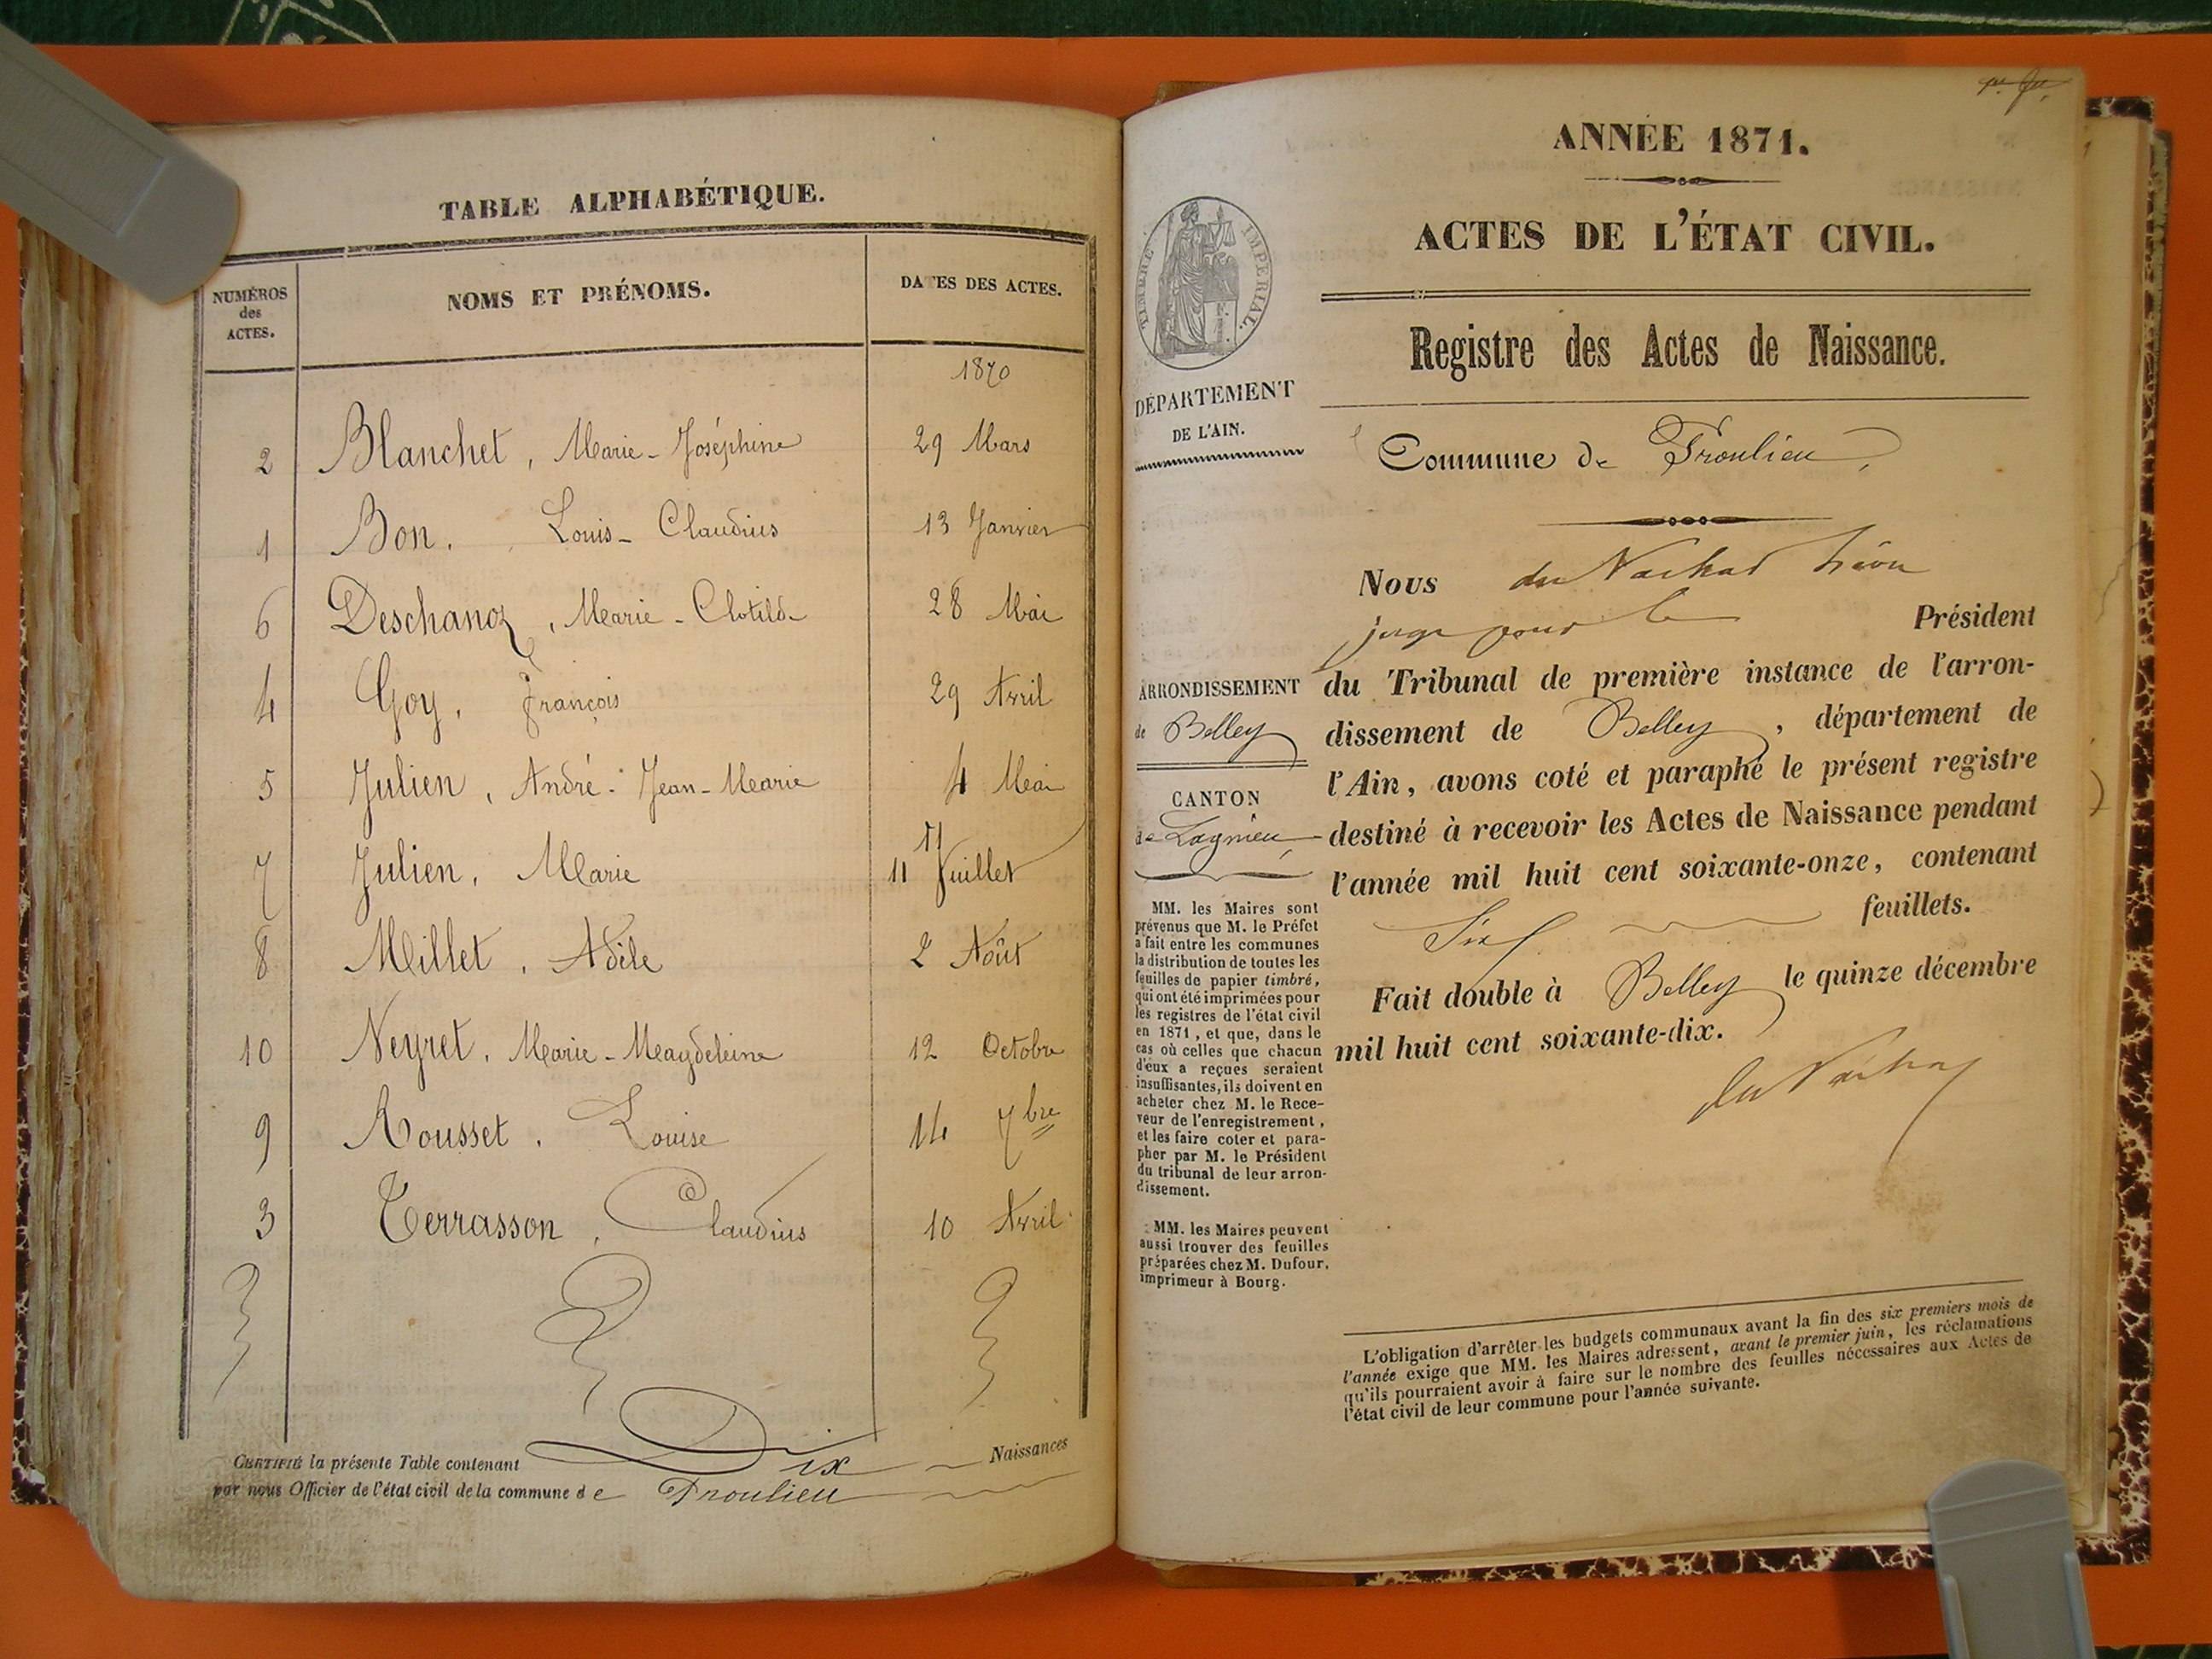 TABLE ALPHABÉTIQUE.
NUMÉROS des ACTES.
NOMS ET PRÉNOMS.
DATES DES ACTES.
1870
2 Blanchet, Marie-Joséphine 29 Mars
1 Bon. Louis-Claudius 13 Janvier
6 Deschanoz, Marie-Clotilde 28 Mai
4 Goy, François 29 Avril
5 Julien, André-Jean-Marie 4 Mai
7 Julien, Marie 11 Juillet
8 Millet, Adèle 2 Août
10 Neyret, Marie-Magdeleine 12 Octobre
9 Rousset, Louise 14 7bre
3 Terrasson, Claudius 10 Avril
CERTIFIÉ la présente Table contenant Dix Naissances
par nous Officier de l'état civil de la commune de Proulieu
ANNÉE 1871.
ACTES DE L'ÉTAT CIVIL.
TIMBRE IMPERIAL.
DÉPARTEMENT
DE L'AIN.
Registre des Actes de Naissance.
Commune de Proulieu,
ARRONDISSEMENT
de Belley
CANTON
de Lagnieu
MM. les Maires sont
prévenus que M. le Préfet
a fait entre les communes
la distribution de toutes les
feuilles de papier timbré,
qui ont été imprimées pour
les registres de l'état civil
en 1871, et que, dans le
cas où celles que chacun
d'eux a reçues seraient
insuffisantes, ils doivent en
acheter chez M. le Rece-
veur de l'enregistrement,
et les faire coter et para-
pher par M. le Président
du tribunal de leur arron-
dissement.
MM. les Maires peuvent
aussi trouver des feuilles
préparées chez M. Dufour,
imprimeur à Bourg.
Nous
juge pour le Président
du Tribunal de première instance de l'arron-
dissement de Belley, département de
l'Ain, avons coté et paraphé le présent registre
destiné à recevoir les Actes de Naissance pendant
l'année mil huit cent soixante-onze, contenant
Six feuillets.
Fait double à Belley le quinze décembre
mil huit cent soixante-dix.
L'obligation d'arrêter les budgets communaux avant la fin des six premiers mois de
l'année exige que MM. les Maires adressent, avant le premier juin, les réclamations
qu'ils pourraient avoir à faire sur le nombre des feuilles nécessaires aux Actes de
l'état civil de leur commune pour l'année suivante.